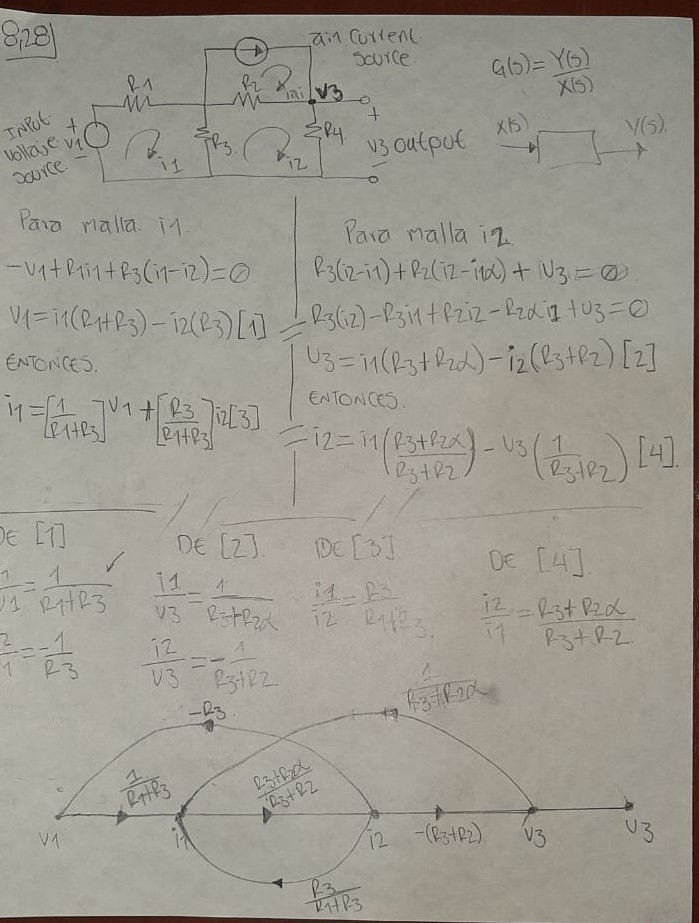 8,28
ai1 current
source.
G(s)=Y(s)/X(s)
R1
R2
iαi
V3
+
INPUT
voltaje
source
+
V1
-
i1
R3
i2
R4
V3 output
-
X(s)
Y(s)
Para malla i1
-V1+R1i1+R3(i1-i2)=0
V1=i1(R1+R3)-i2(R3) [1]
ENTONCES.
i1=[1/R1+R3]V1+[R3/R1+R3]i2[3]
Para malla i2
R3(i2-i1)+R2(i2-i1α)+V3=0
R3(i2)-R3i1+R2i2-R2αi1+V3=0
V3=i1(R3+R2α)-i2(R3+R2)[2]
ENTONCES.
i2=i1(R3+R2α/R3+R2)-V3(1/R3+R2) [4].
DE [1]
1/V1=1/R1+R3 ✓
2/1=-1/R3
DE [2]
i1/V3=1/R3+R2α
i2/V3=-1/R3+R2
DE [3]
i1/i2=R3/R1+R3.
DE [4].
i2/i1=R3+R2α/R3+R2
-R3
1/R3+R2α
1/R1+R3
R3+R2α/R3+R2
V1
i1
i2
-(R3+R2)
V3
V3
R3/R1+R3